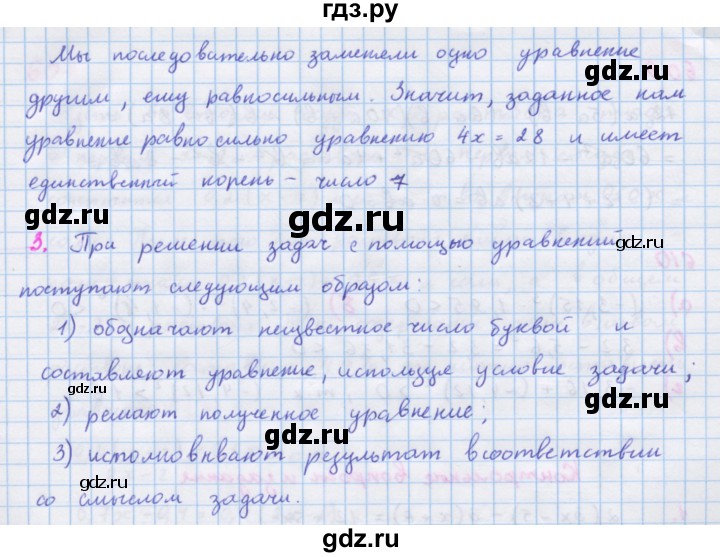 гдз.ру
Мы последовательно заменяли одно уравнение
другим, ему равносильным. Значит, заданное нам
уравнение равносильно уравнению 4x = 28 и имеет
единственный корень – число 7
3. При решении задач с помощью уравнений
поступают следующим образом:
1) обозначают неизвестное число буквой и
составляют уравнение, используя условие задачи;
2) решают полученное уравнение;
3) истолковывают результат в соответствии
со смыслом задачи.
gdz.ru
gdz.ru
gdz.ru
gdz.ru
gdz.ru
gdz.ru
gdz.ru
gdz.ru
gdz.ru